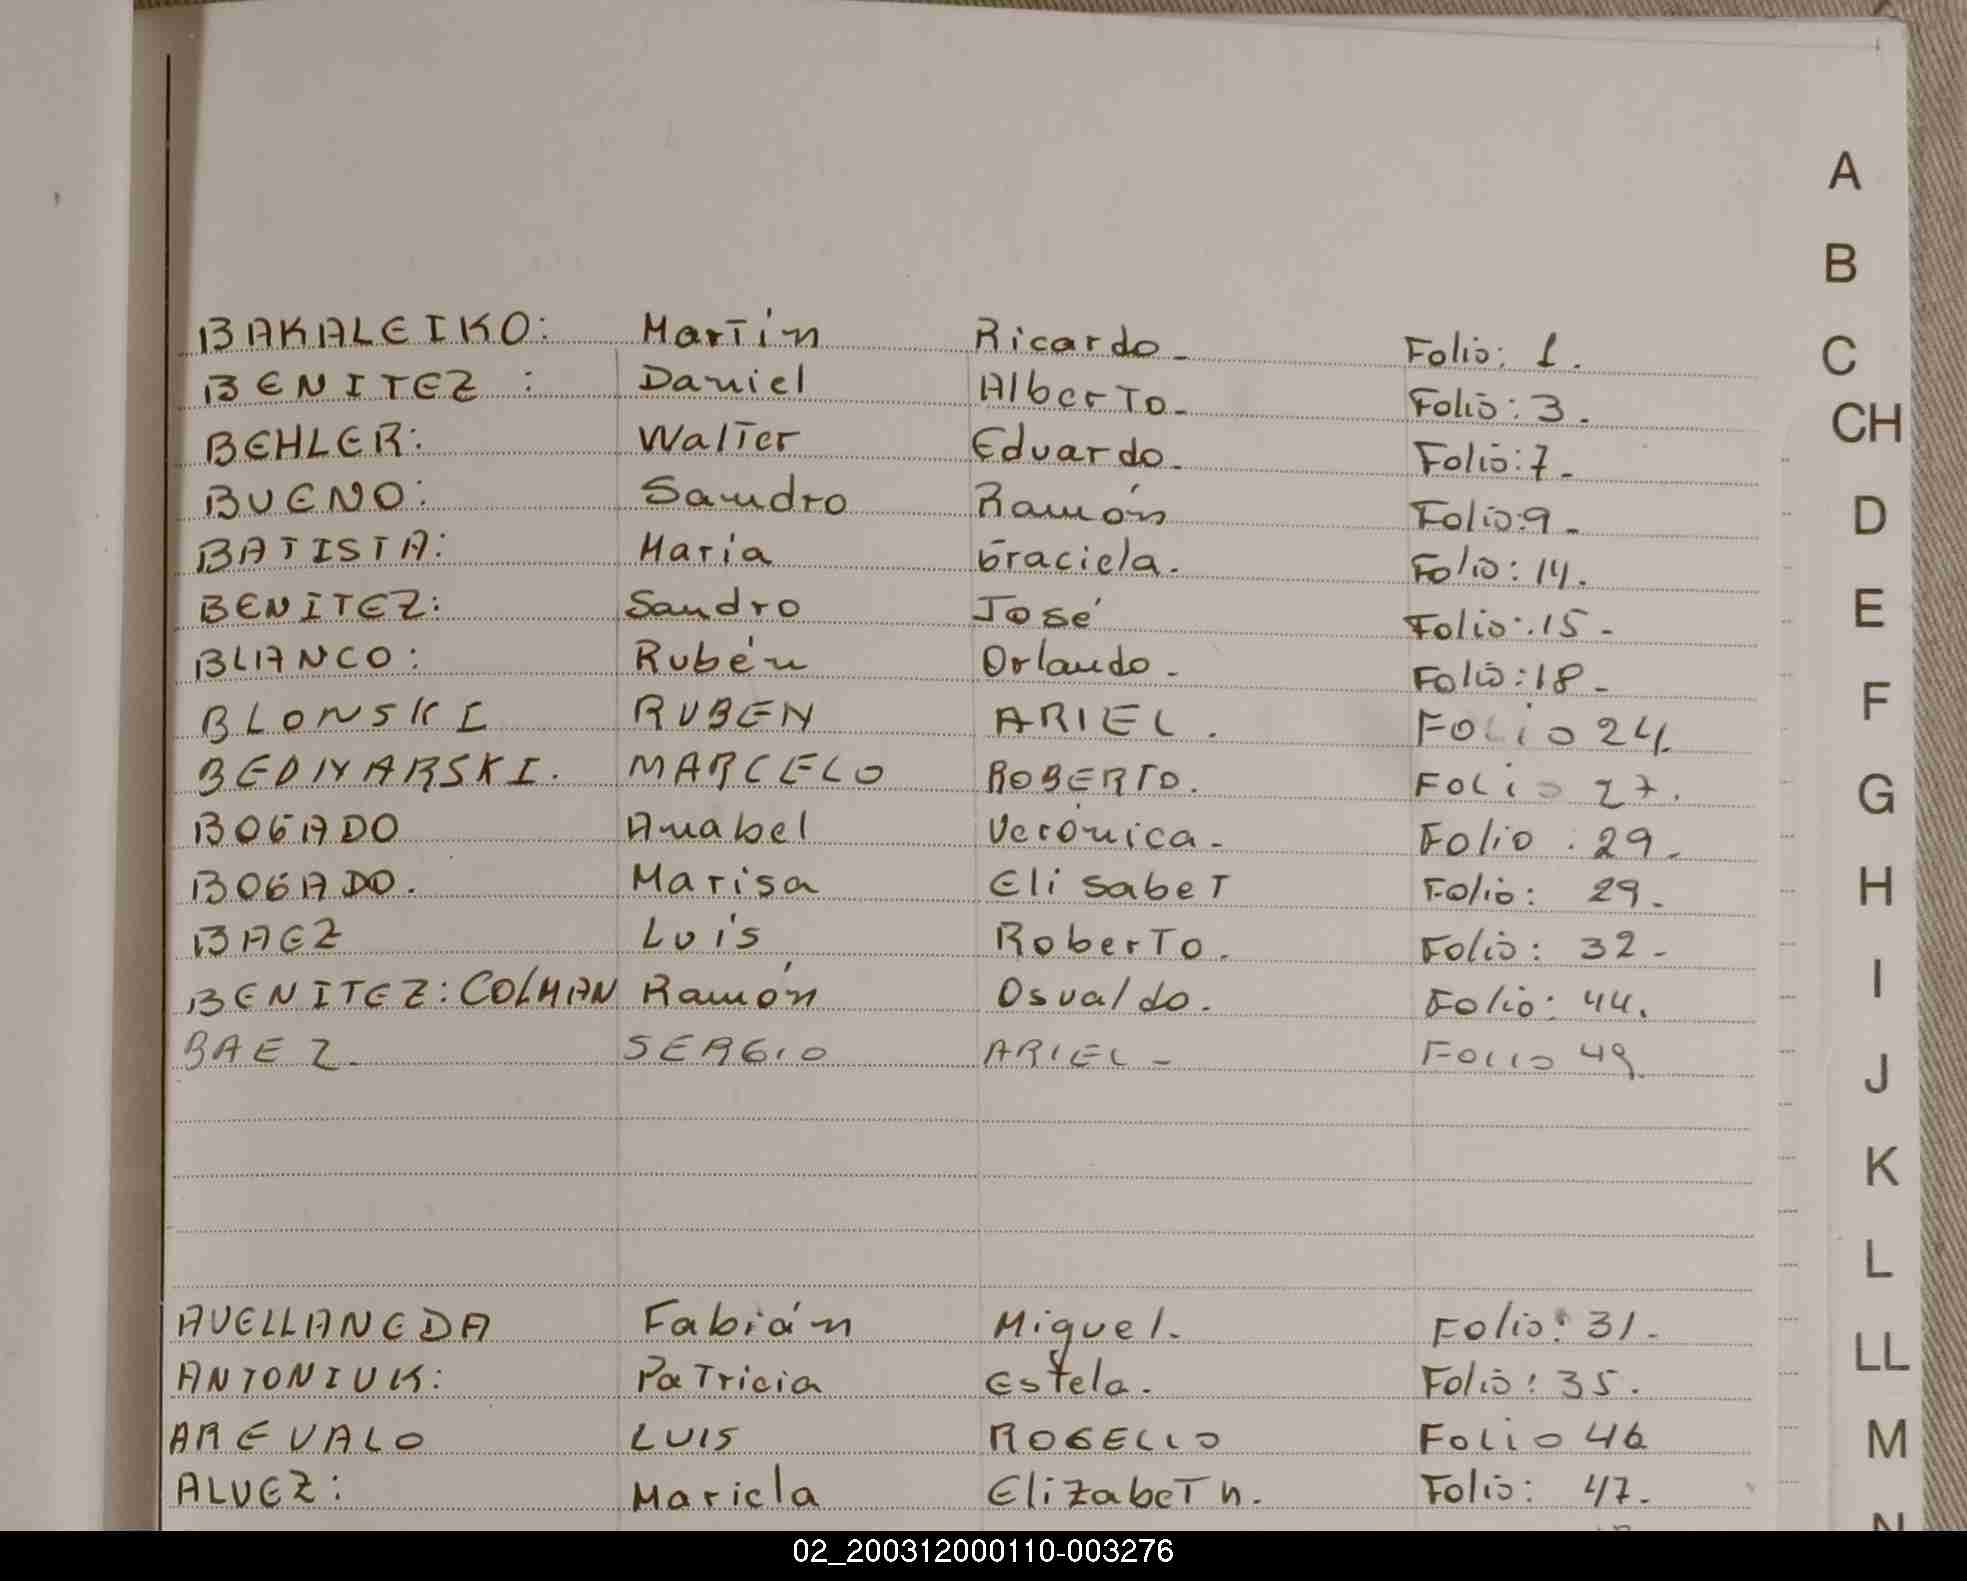 A
B
C
CH
D
E
F
G
H
I
J
K
L
LL
M
N
BAKALEIKO: Martín Ricardo - Folio: 1.
BENITEZ : Daniel Alberto - Folio: 3.
BEHLER: Walter Eduardo. Folio: 7-
BUENO: Sandro Ramón Folio: 9-
BATISTA: Maria Graciela. Folio: 14.
BENITEZ: Sandro José Folio: 15-
BLANCO: Rubén Orlando - Folio: 18-
BLONSKI RUBEN ARIEL. FOLIO 24.
BEDNARSKI. MARCELO ROBERTO. FOLIO 27.
BOGADO Anabel Verónica - Folio : 29-
BOGADO. Marisa Elisabet Folio: 29.
BAEZ Luis Roberto. Folio: 32-
BENITEZ: COLMAN Ramón Osvaldo. Folio: 44.
BAEZ. SERGIO ARIEL - FOLIO 49.
AVELLANEDA Fabián Miguel. Folio: 31-
ANTONIUK: Patricia Estela. Folio: 35.
AREVALO LUIS ROGELIO FOLIO 46
ALVEZ: Mariela Elizabeth. Folio: 47.
02_200312000110-003276